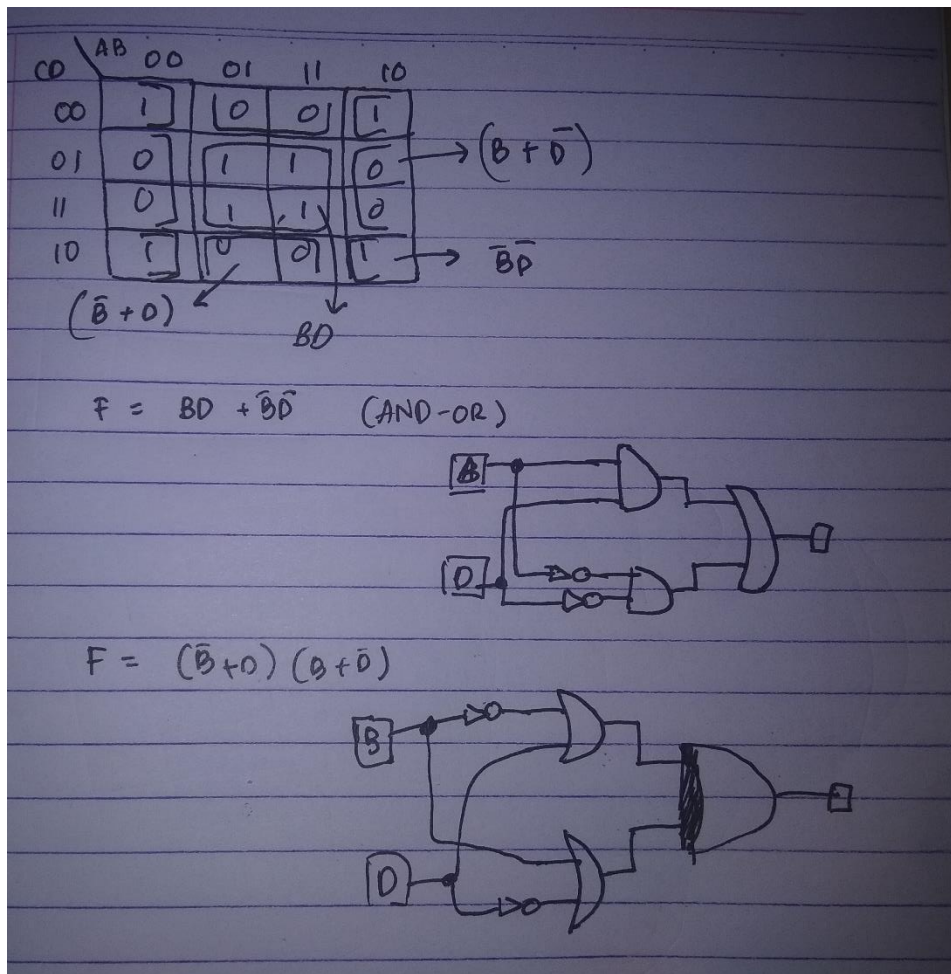 CD \ AB 00 01 11 10
00 1 0 0 1
01 0 1 1 0 → (B + D̄)
11 0 1 1 0
10 1 0 0 1 → B̄D̄
(B̄ + D)
BD
F = BD + B̄D̄ (AND-OR)
B
D
F = (B̄+D) (B+D̄)
B
D